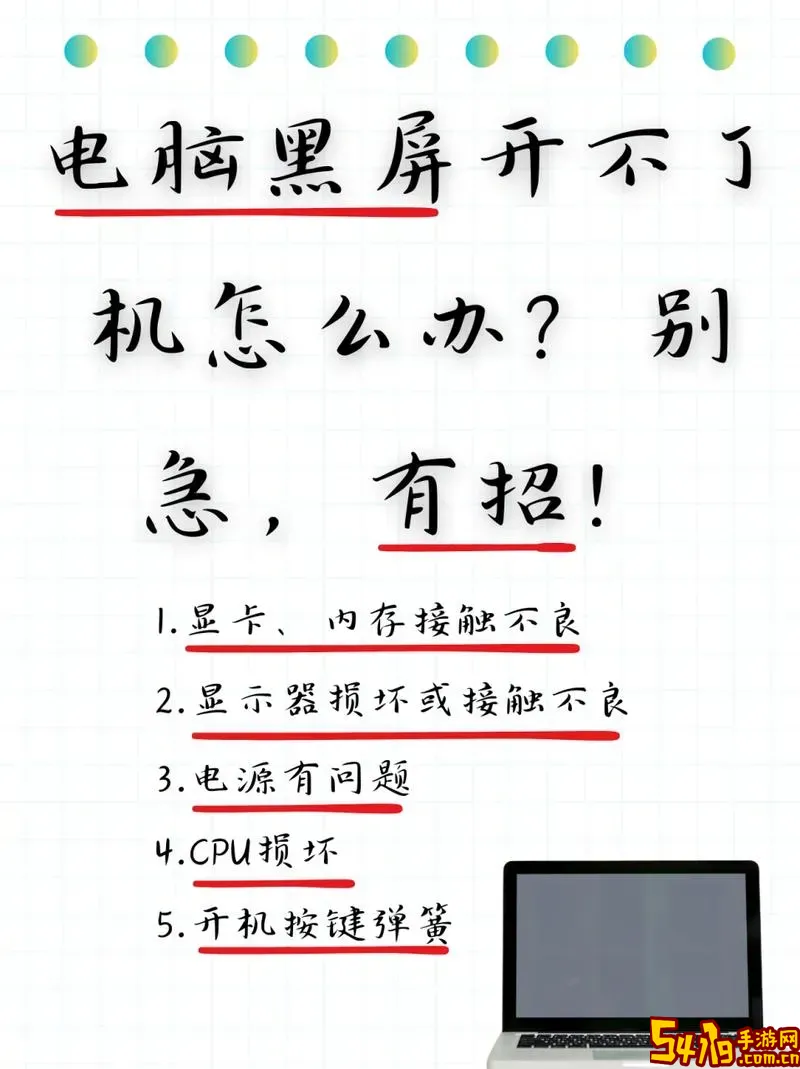 电脑黑屏开不了
机怎么办？别
急，有招！
1.显卡、内存接触不良
2.显示器损坏或接触不良
3.电源有问题
4.CPU损坏
5.开机按键弹簧
5419手游网
.com.cn